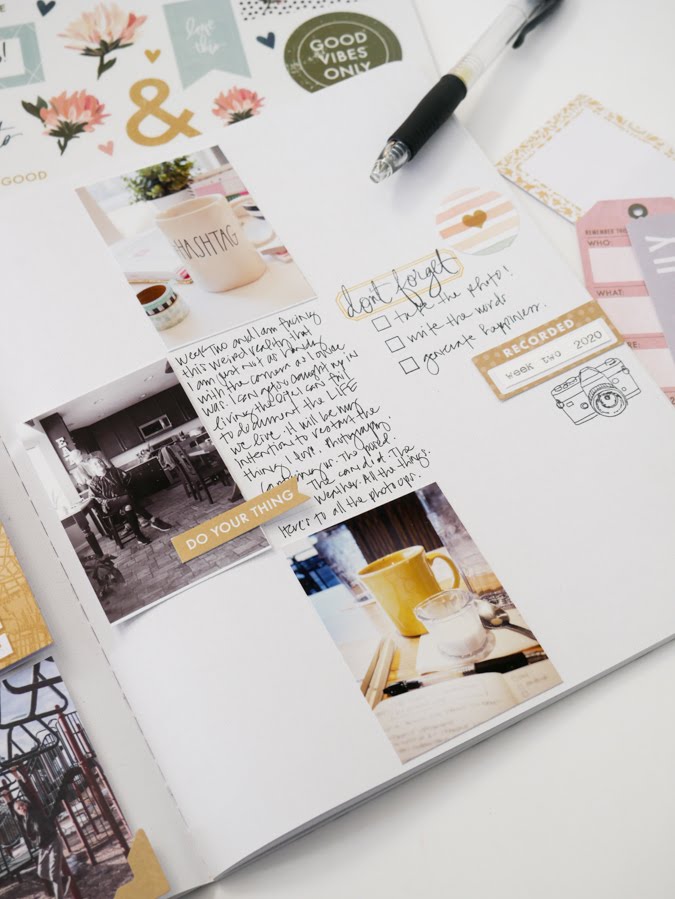 love
this
GOOD
VIBES
ONLY
&
GOOD
HASHTAG
don't forget
take the photo!
write the words
generate happiness.
RECORDED
week two 2020
REMEMBER THIS
WHO:
WHAT:
week two and I am finding
this weird reality that
I am just not as handy
with the camera as I once
was. I can get so caught up in
living the life I can fail
to document the LIFE
we live. it will be my
intention to restart the
thing I love. Photography
for the
The candid. The
weather. All the things.
Here's to all the photo ops.
DO YOUR THING